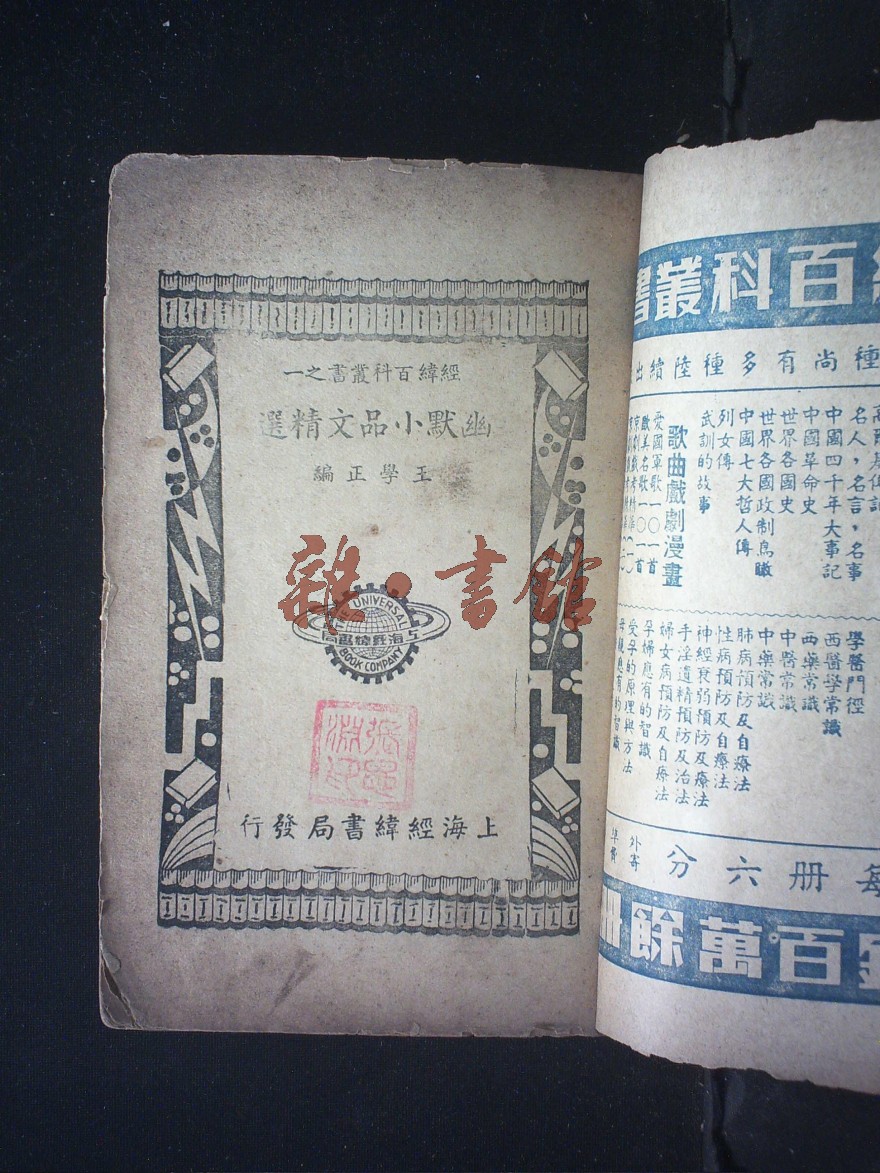 經緯百科叢書之一
幽默小品文精選
王學正編
UNIVERSAL
上海經緯書局
BOOK COMPANY
上海經緯書局發行
雜·書館
百科叢書
種尚有多種陸續出
名人,名言,名事
中國四千年大事記
中國革命史
世界各國史
世界各國政制鳥瞰
中國七大哲人傳
列女傳
武訓的故事
歌曲戲劇漫畫
愛國軍歌一〇一首
歐美名歌一〇一首
學醫門徑
西醫學常識
西藥常識
中醫常識
中藥常識
肺病預防及自療法
性病預防及自療法
神經衰弱預防及療法
手淫遺精預防及治法
婦女病預防及自療法
孕婦應有的智識
受孕的原理與方法
每册六分
外寄
百萬餘冊